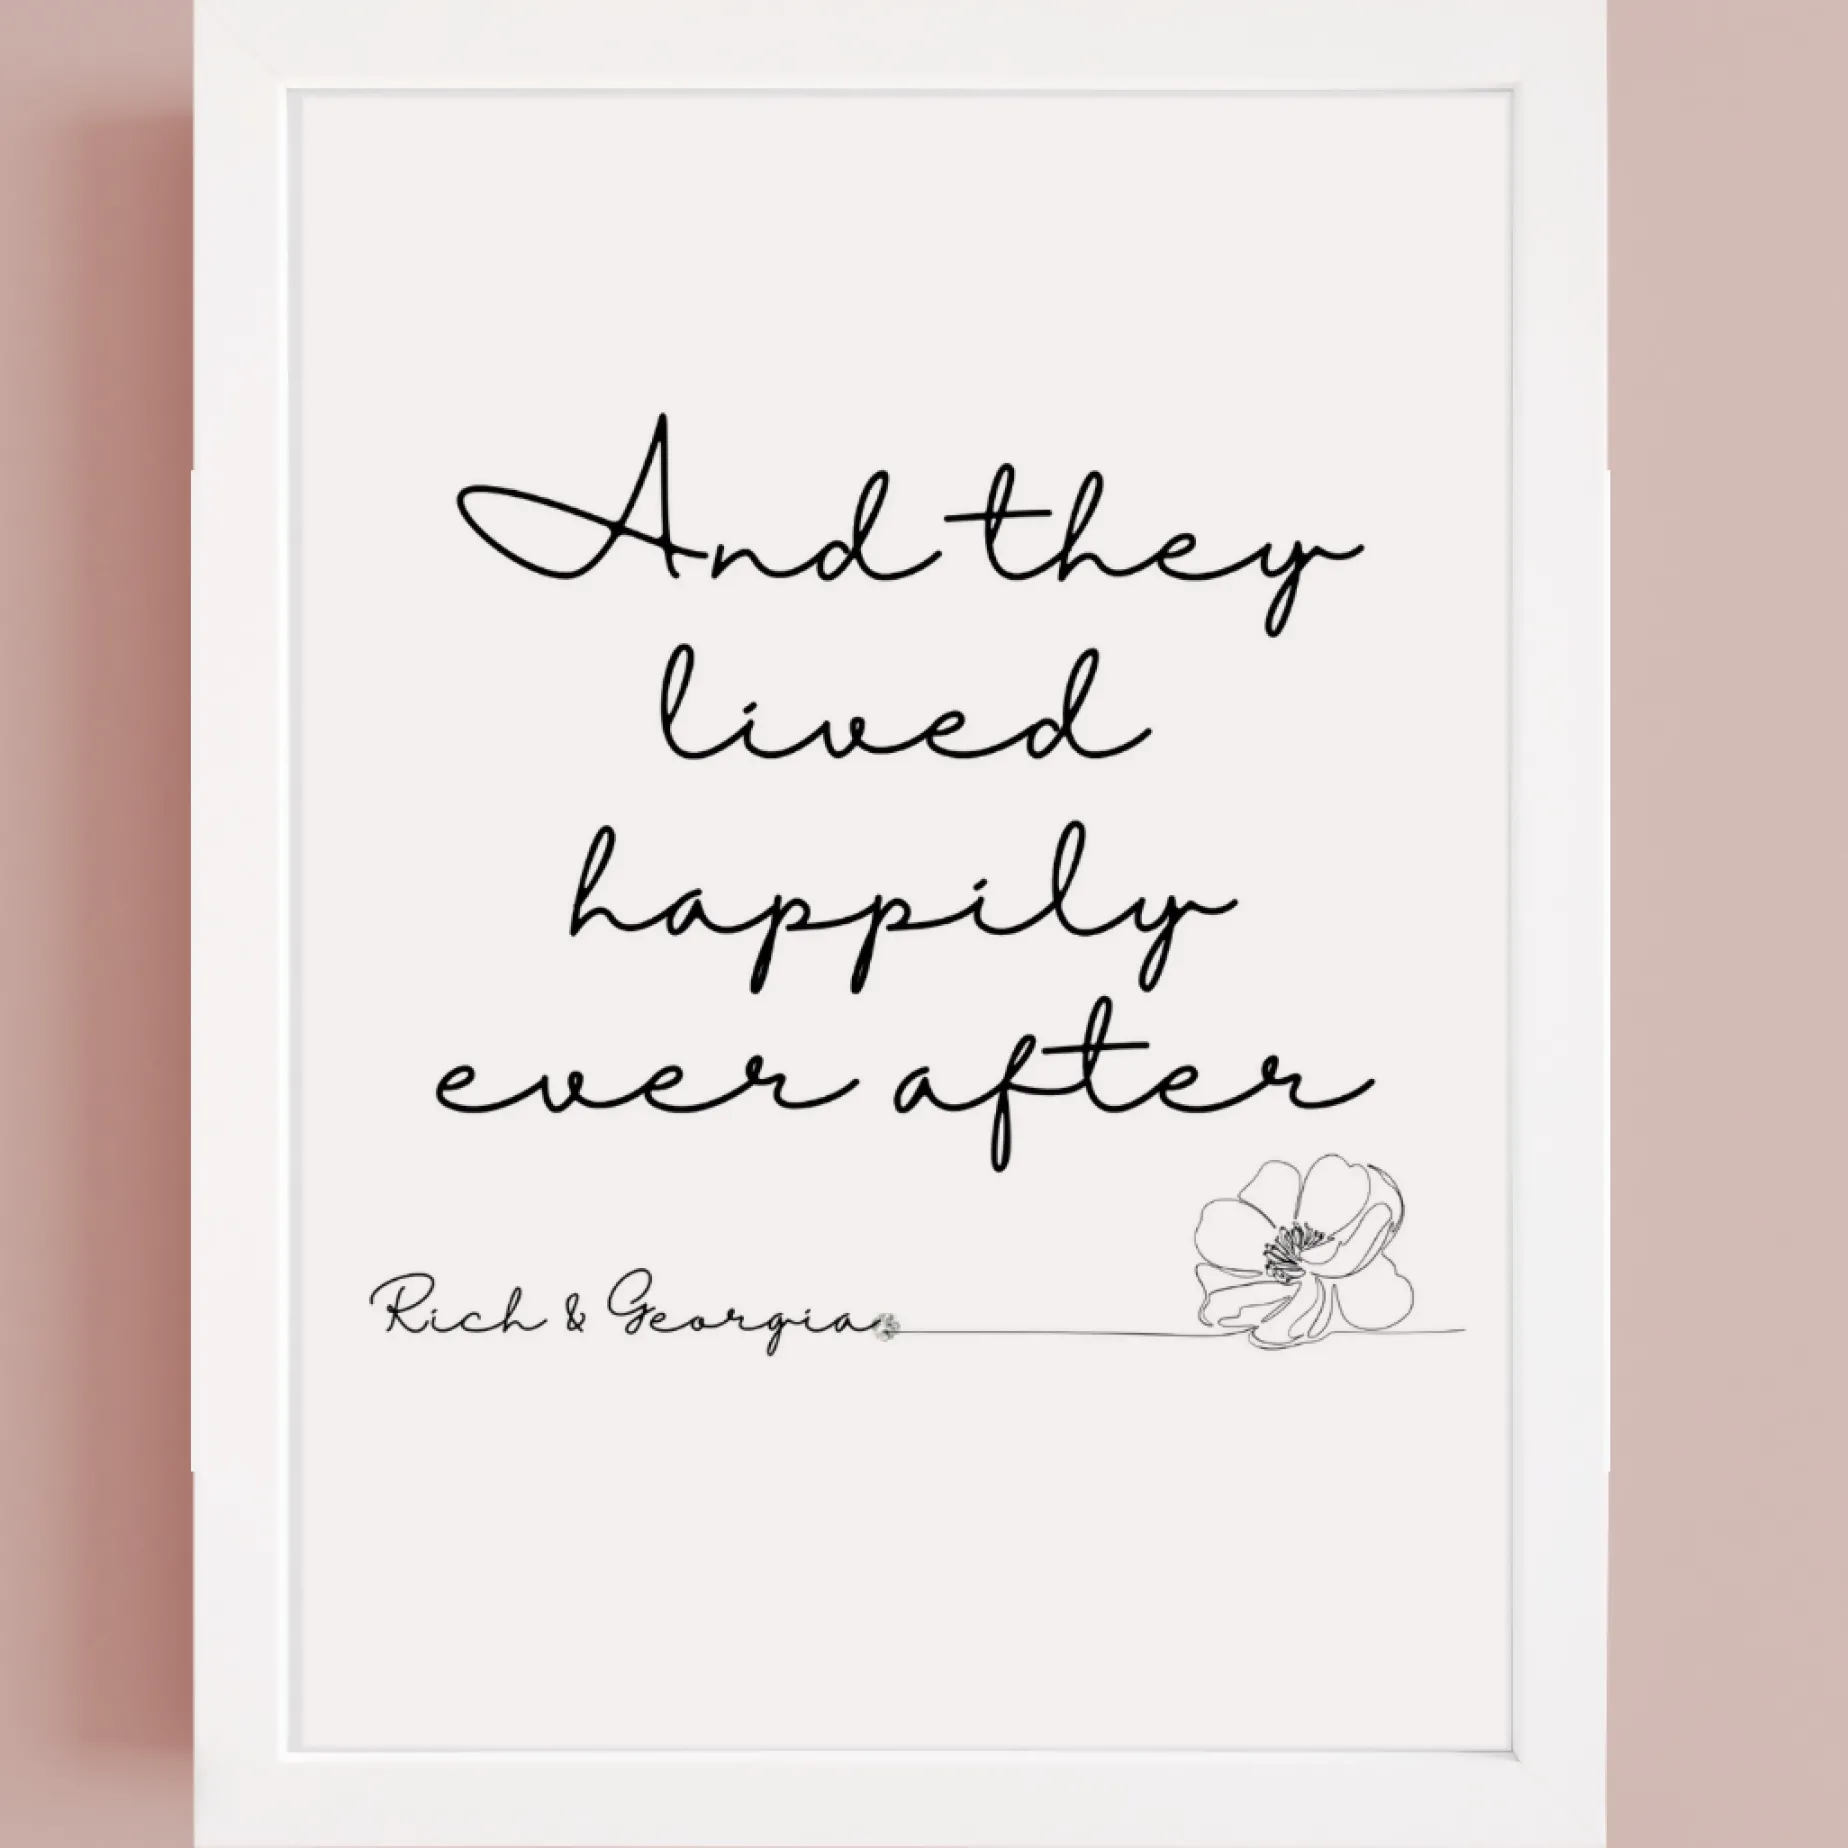 And they
lived
happily
ever after
Rich & Georgia